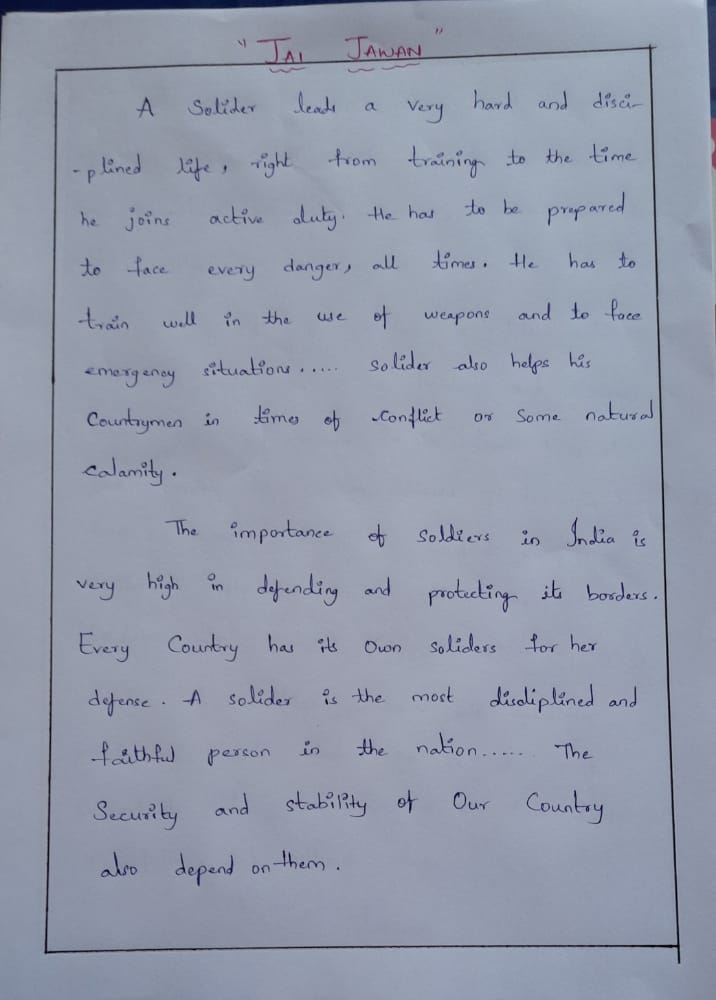 "JAI JAWAN"
A Solider leads a very hard and disci-
-plined life, right from training to the time
he joins active duty. He has to be prepared
to face every danger, all times. He has to
train well in the use of weapons and to face
emergency situations..... solider also helps his
Countrymen in times of conflict or some natural
calamity.
The importance of soldiers in India is
very high in defending and protecting its borders.
Every Country has its own soliders for her
defense. A solider is the most disdiplined and
faithful person in the nation..... The
Security and stability of Our Country
also depend on them.